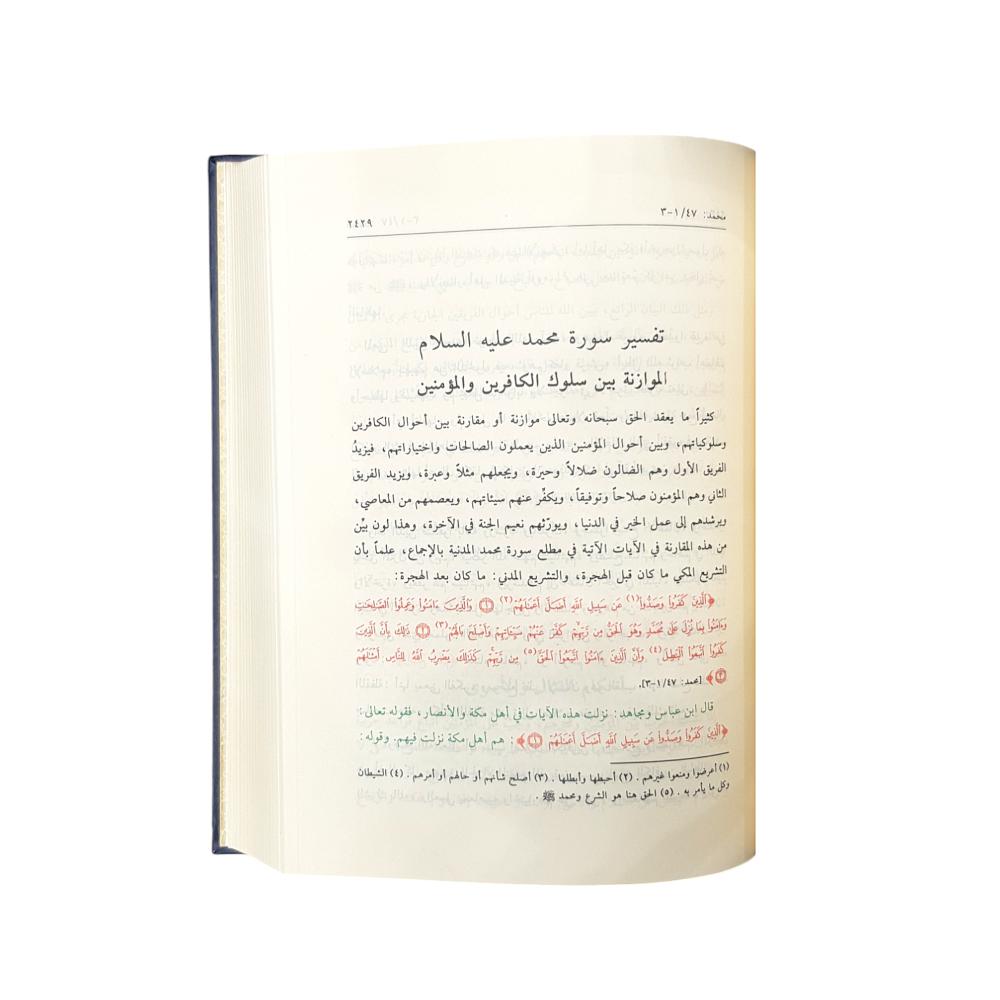 محمد: ٤٧/ ١-٣ ٢٤٢٩
تفسير سورة محمد عليه السلام
الموازنة بين سلوك الكافرين والمؤمنين
كثيراً ما يعقد الحق سبحانه وتعالى موازنة أو مقارنة بين أحوال الكافرين
وسلوكياتهم، وبين أحوال المؤمنين الذين يعملون الصالحات واختياراتهم، فيزيدُ
الفريق الأول وهم الضالون ضلالاً وحيرة، ويجعلهم مثلاً وعبرة، ويزيد الفريق
الثاني وهم المؤمنون صلاحاً وتوفيقاً، ويكفِّر عنهم سيئاتهم، ويعصمهم من المعاصي،
ويرشدهم إلى عمل الخير في الدنيا، ويورِّثهم نعيم الجنة في الآخرة، وهذا لون بيِّن
من هذه المقارنة في الآيات الآتية في مطلع سورة محمد المدنية بالإجماع، علماً بأن
التشريع المكي ما كان قبل الهجرة، والتشريع المدني: ما كان بعد الهجرة:
﴿الَّذِينَ كَفَرُوا وَصَدُّوا(١) عَن سَبِيلِ اللَّهِ أَضَلَّ أَعْمَالَهُمْ(٢) ۝١ وَالَّذِينَ ءَامَنُوا وَعَمِلُوا الصَّالِحَاتِ
وَءَامَنُوا بِمَا نُزِّلَ عَلَى مُحَمَّدٍ وَهُوَ الْحَقُّ مِن رَّبِّهِمْ كَفَّرَ عَنْهُمْ سَيِّئَاتِهِمْ وَأَصْلَحَ بَالَهُمْ(٣) ۝٢ ذَلِكَ بِأَنَّ الَّذِينَ
كَفَرُوا اتَّبَعُوا الْبَاطِلَ(٤) وَأَنَّ الَّذِينَ ءَامَنُوا اتَّبَعُوا الْحَقَّ(٥) مِن رَّبِّهِمْ كَذَلِكَ يَضْرِبُ اللَّهُ لِلنَّاسِ أَمْثَالَهُمْ
۝٣﴾ [محمد: ٤٧/ ١-٣].
قال ابن عباس ومجاهد: نزلت هذه الآيات في أهل مكة والأنصار، فقوله تعالى:
﴿الَّذِينَ كَفَرُوا وَصَدُّوا عَن سَبِيلِ اللَّهِ أَضَلَّ أَعْمَالَهُمْ ۝١﴾: هم أهل مكة نزلت فيهم. وقوله:
(١) أعرضوا ومنعوا غيرهم. (٢) أحبطها وأبطلها. (٣) أصلح شأنهم أو حالهم أو أمرهم. (٤) الشيطان
وكل ما يأمر به. (٥) الحق هنا هو الشرع ومحمد ﷺ.